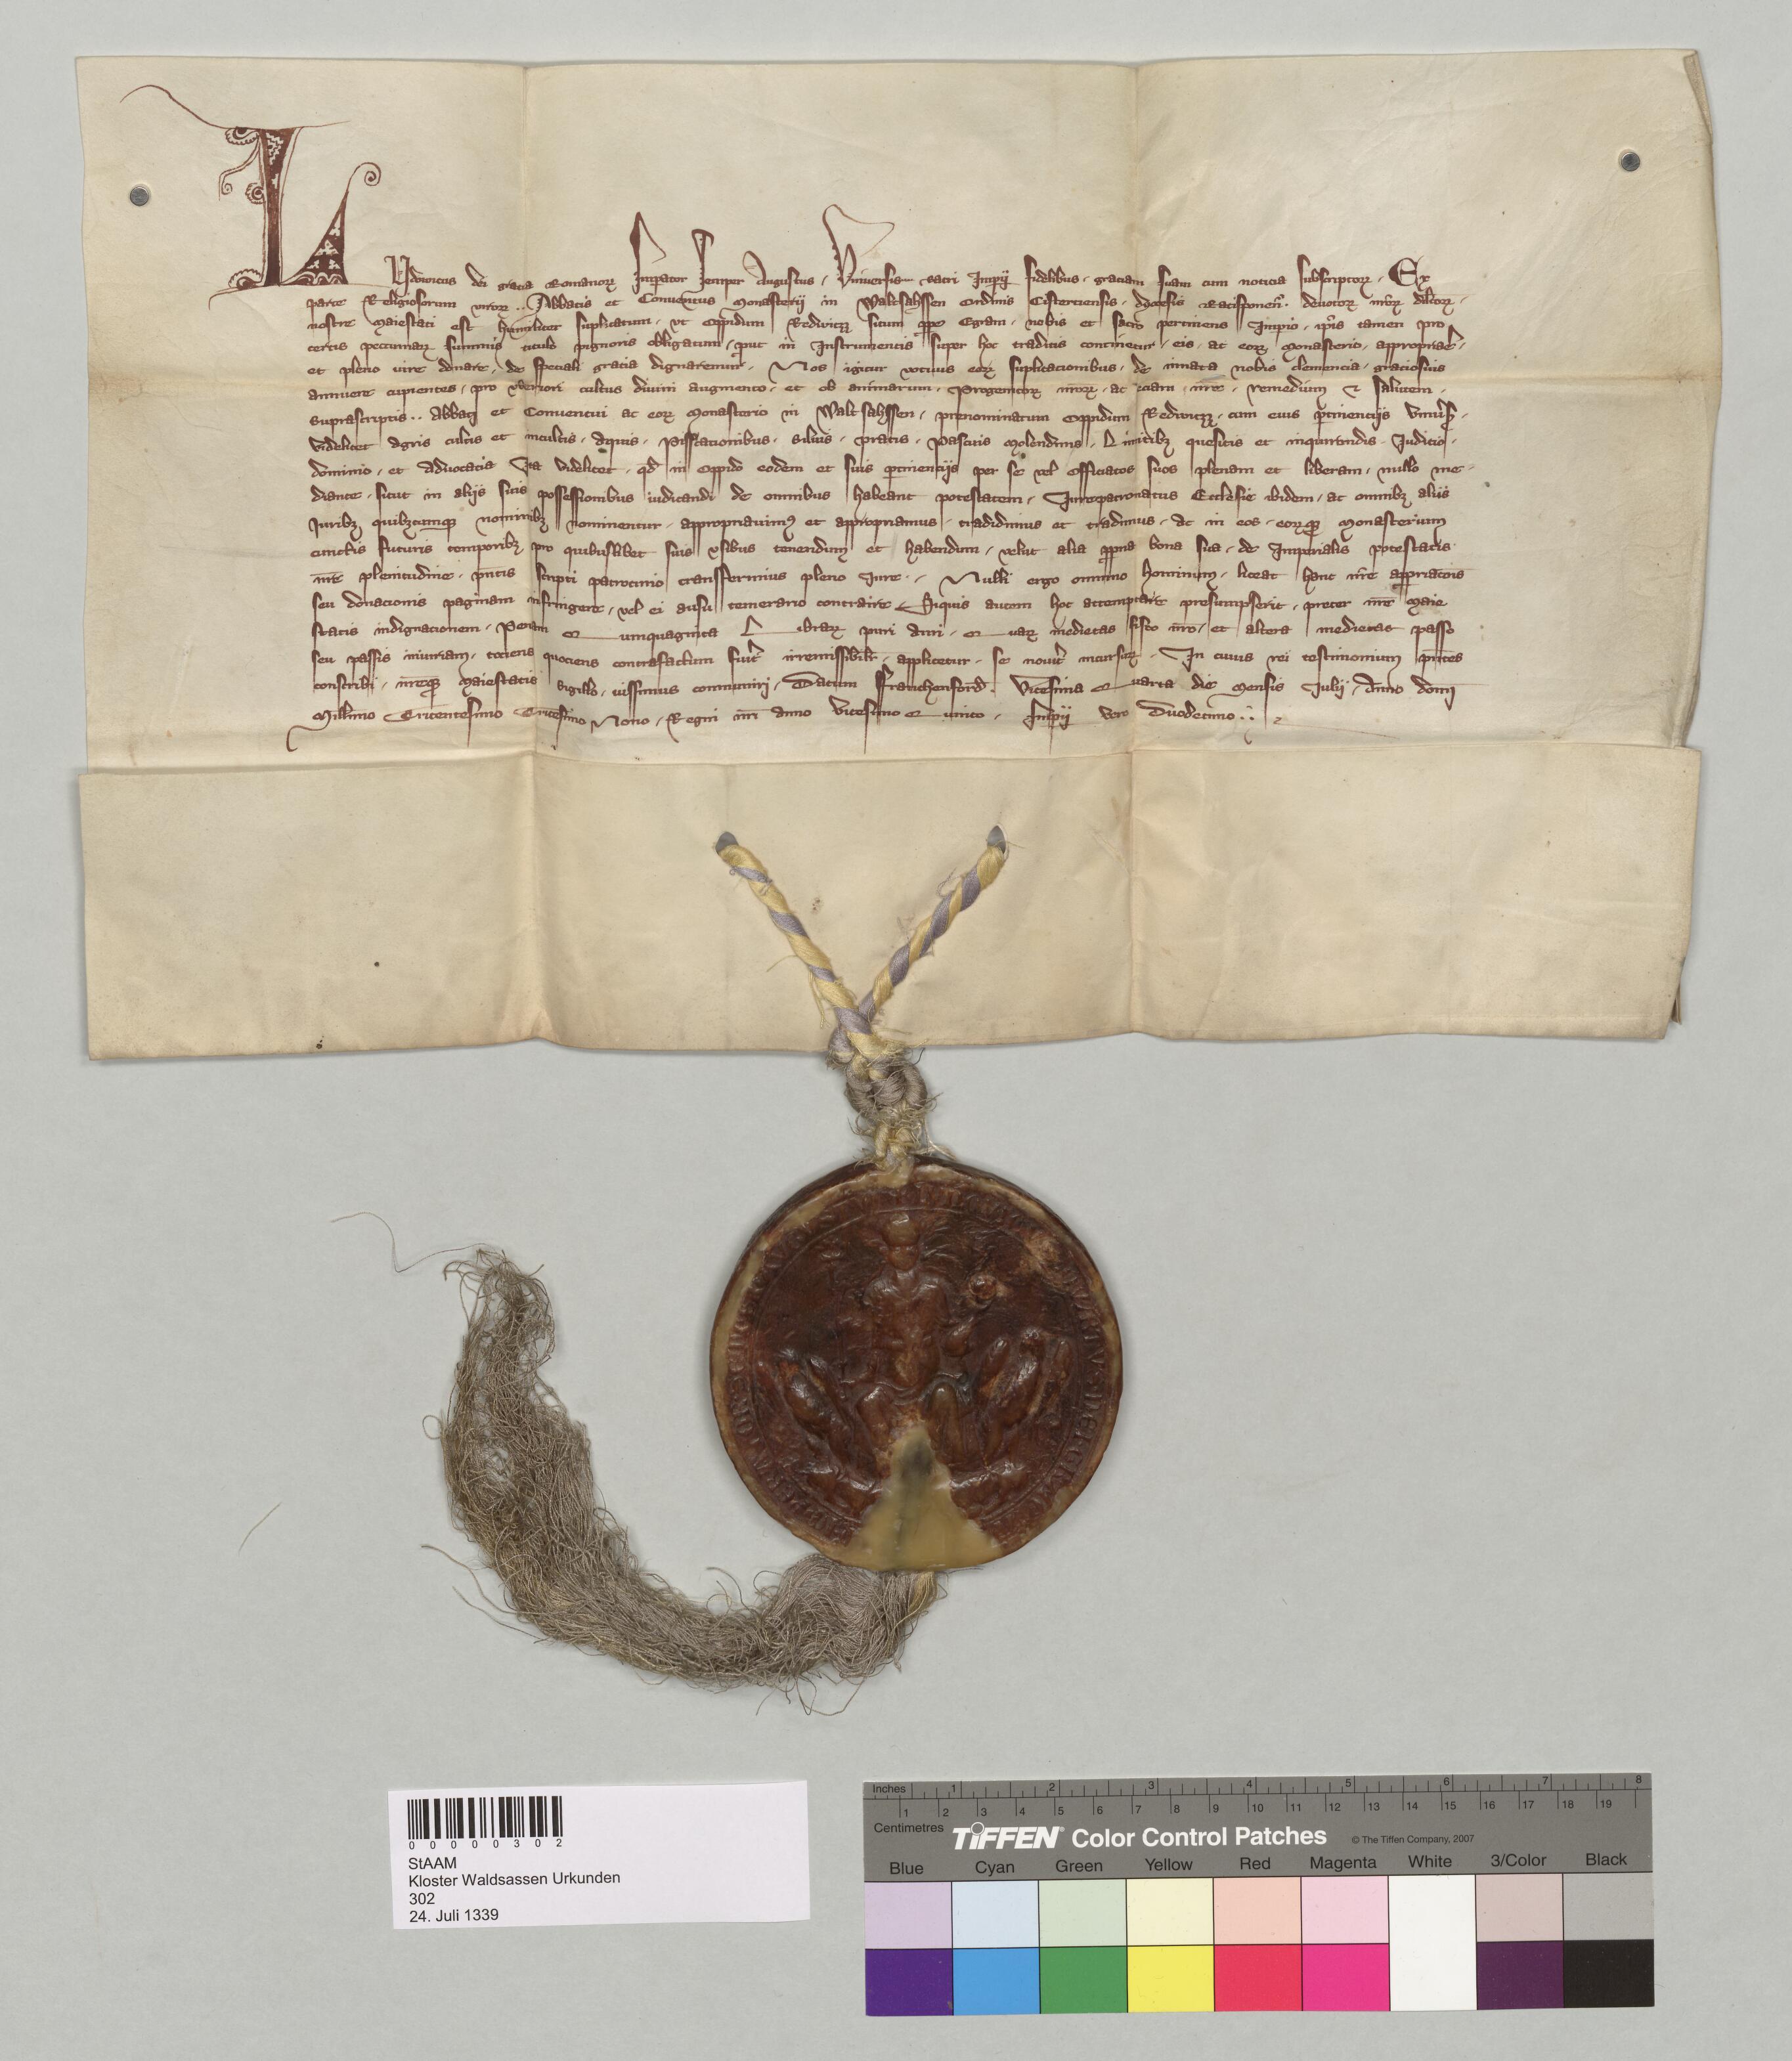 LUdowicus dei gratia Romanorꝝ Imperator Semper Augustus · Universis sacri Imperij fidelibus · graciam suam cum noticia subscriptorꝝ · Ex
parte Religiosorum virorꝝ · · Abbatis et Conventus Monasterij in Waltsahssen Ordinis Cisterciensis · dyocesis Ratisponen̄ · devotorꝝ nr̄orꝝ dilc̄orꝝ ·
nostre Maiestati est humiliter suplicatum · vt Oppidum Redwiczz situm ꝓpe Egram · nobis et sacro pertinens Imperio · ip̄is tamen pro
certis pecuniarꝝ summis titulo pignoris obligatum · ꝓut in Instrumentis super hoc traditis continetur · eis · ac eorꝝ Monasterio · appropriare ·
et pleno iure donare · de speciali gratia dignaremur · Nos igitur votivis eorꝝ suplicacionibus · de innata nobis clemencia · graciosius
annuere cupientes · pro vberiori cultus divini augmento · et ob animarum · Progenitorꝝ nr̄orꝝ · ac eciam nr̄e · remedium et salutem ·
suprascriptis · · Abbati et Conventui ac eorꝝ Monasterio in Waltsahssen · prenominatum Oppidum Redwiczz · cum eius ꝑtinencijs Vniv̄sis ·
Videlicet Agris cultis et incultis · Aquis · Piscacionibus · Silvis · pratis · Pascuis Molendinis · Limitibꝫ quesitis et inquirendis · Iudicio ·
dominio · et Advocatia Ita Videlicet · qd̄ in Oppido eodem et suis ꝑtinencijs per se vel Officiatos suos plenam et liberam · nullo me-
diante · sicut in alijs suis possessionibus iudicandi de omnibus habeant potestatem · Iurepatronatus Ecclesie ibidem · ac omnibꝫ aliis
Iuribꝫ quibꝫcumqꝫ nominibꝫ nominentur · appropriavimꝰ et appropriamus · tradidimus et tradimus · ac in eos · eorꝝqꝫ Monasterium
cunctis futuris temporibꝫ pro quibuslibet suis vsibus tenendum et habendum · velut alia ꝓpria bona sua · de Imperialis potestatis
nr̄e plenitudine · pn̄tis scripti patrocinio transferimus pleno Iure · Nulli ergo omnino hominum · liceat hanc nr̄e appriacōis
seu donacionis paginam infringere · vel ei ausu temerario contraire Siquis autem hoc attemptare presumpserit · preter nr̄e Maie
statis indignacionem · Penam Quinquaginta Librarꝝ puri Auri · Quarꝝ medietas fisco nr̄o · et altera medietas passo
seu passis iniuriam · tociens quociens contrafactum fuit̄ irremissibilit̄ · applicetur · se nov̄it incursurꝝ · In cuius rei testimonium pn̄tes
conscribi · nr̄eqꝫ Maiestatis Sigillo · iussimus communiri · Datum Franchenford · Vicesima Quarta die Mensis Iulij · Anno domī
Millīmo Tricentesimo Tricesimo Nono · Regni nr̄i Anno Vicesimo Quinto · Imperij Vero Duodecimo · ·
0 0 0 0 0 3 0 2
StAAM
Kloster Waldsassen Urkunden
302
24. Juli 1339
Inches 1 2 3 4 5 6 7 8
1 2 3 4 5 6 7 8 9 10 11 12 13 14 15 16 17 18 19
Centimetres
TIFFEN® Color Control Patches © The Tiffen Company, 2007
Blue Cyan Green Yellow Red Magenta White 3/Color Black